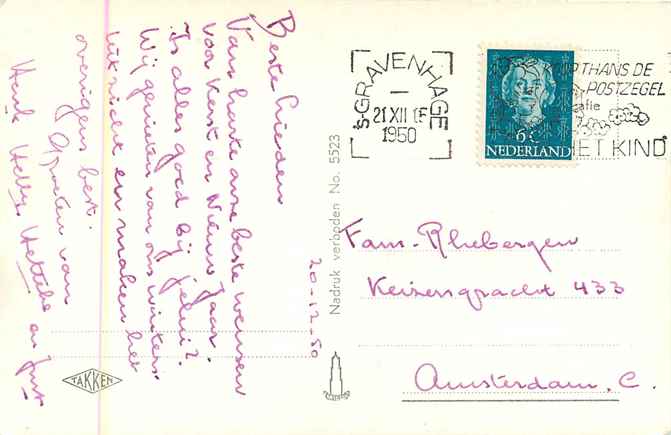 Beste lieden
Van harte onze beste wensen
voor Kerst en Nieuw Jaar.
Is alles goed bij jullie?
Wij genieten van ons winters
uitzicht en maken het
overigens best.
Groeten van
Henk Helly Hetticke en Just
20-12-50
TAKKEN
Nadruk verboden No. 5523
's-GRAVENHAGE
21 XII 18
1950
OP THANS DE
POSTZEGEL
HET KIND
6c
NEDERLAND
Fam. Rhebergen
Keizersgracht 433
Amsterdam. C.